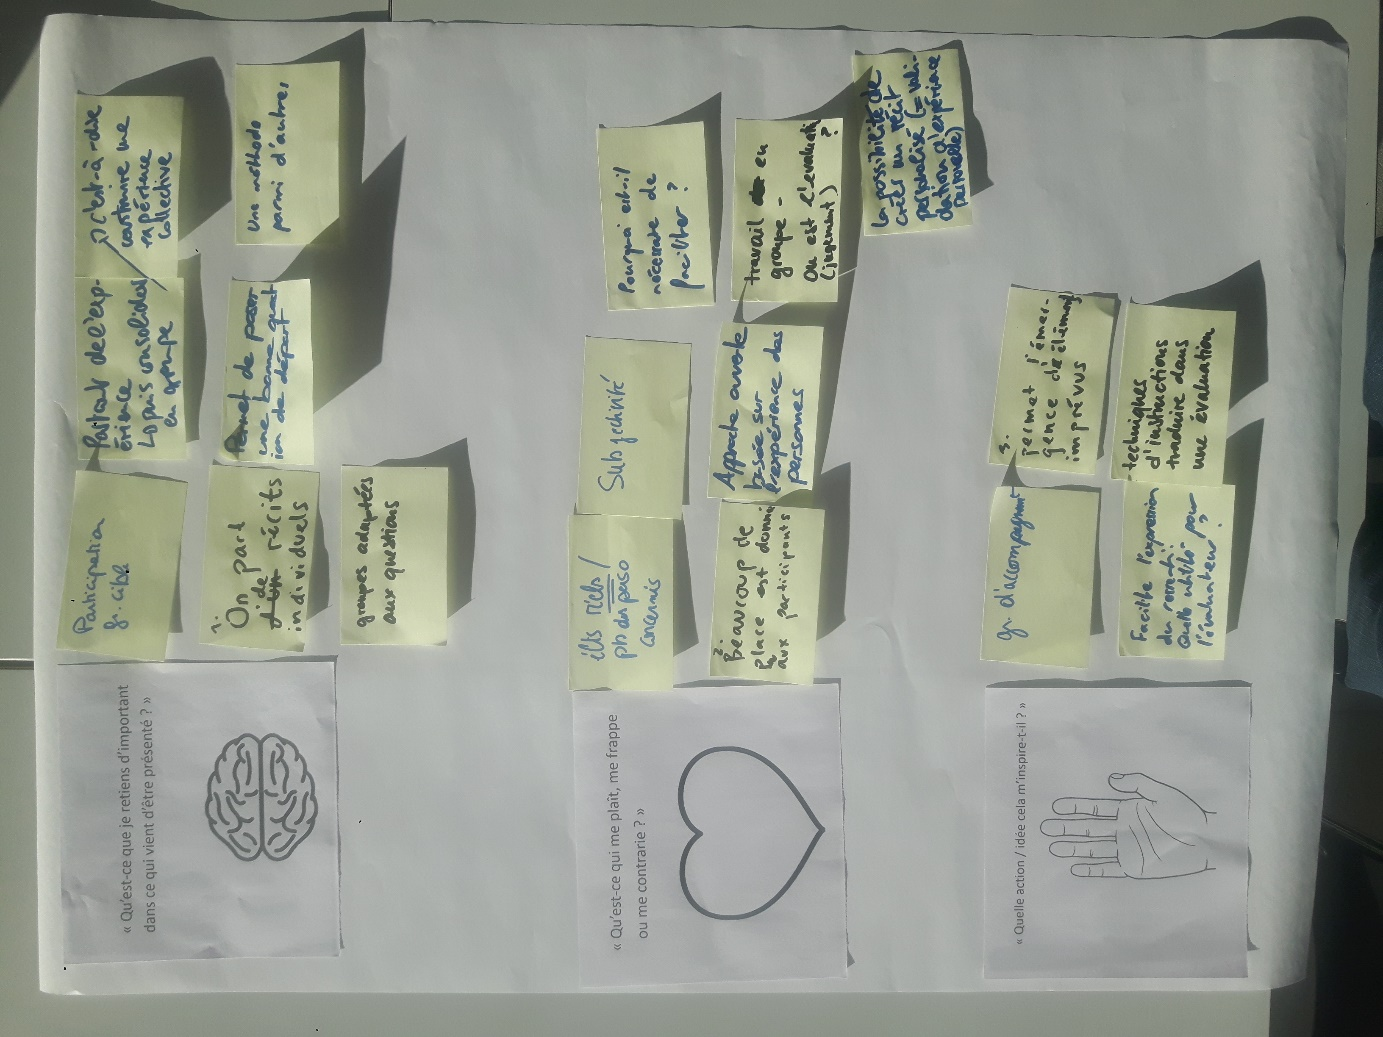 « Qu'est-ce que je retiens d'important
dans ce qui vient d'être présenté ? »
Participation
gr. cible
Partant de l'exp-
érience
puis consolidat
en groupe
c'est-à-dire
construire une
expérience
collective
1.
On part
de
récits
individuels
Permet de poser
une bonne quest
ion de départ
Une méthodo
parmi d'autres,
groupes adaptées
aux questions
« Qu'est-ce qui me plaît, me frappe
ou me contrarie ? »
réels /
pb des perso
concernés
Subjectivité
Pourquoi est-il
nécessaire de
faciliter ?
2.
Beaucoup de
place est donné
aux participants
Approche ouverte
basée sur
l'expérience des
personnes
travail en
groupe -
Où est l'évaluation
(jugement) ?
La possibilité de
créer un récit
personnalisé (= vali-
dation d'expérience
personnelle)
« Quelle action / idée cela m'inspire-t-il ? »
gr. d'accompagnmt
3.
permet l'émer-
gence d'éléments
imprévus
Facilite l'expression
du ressenti.
Quelle utilité pour
l'évaluateur ?
techniques
d'instructions
traduire dans
une évaluation